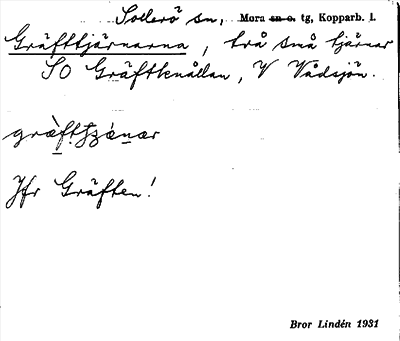 Sollerö sn, Mora sn o. tg, Kopparb. l.
Gräfttjärnarna, två små tjärnar
SO Gräftknallan, V Vådsjön.
Jfr Gräften!
Bror Lindén 1931